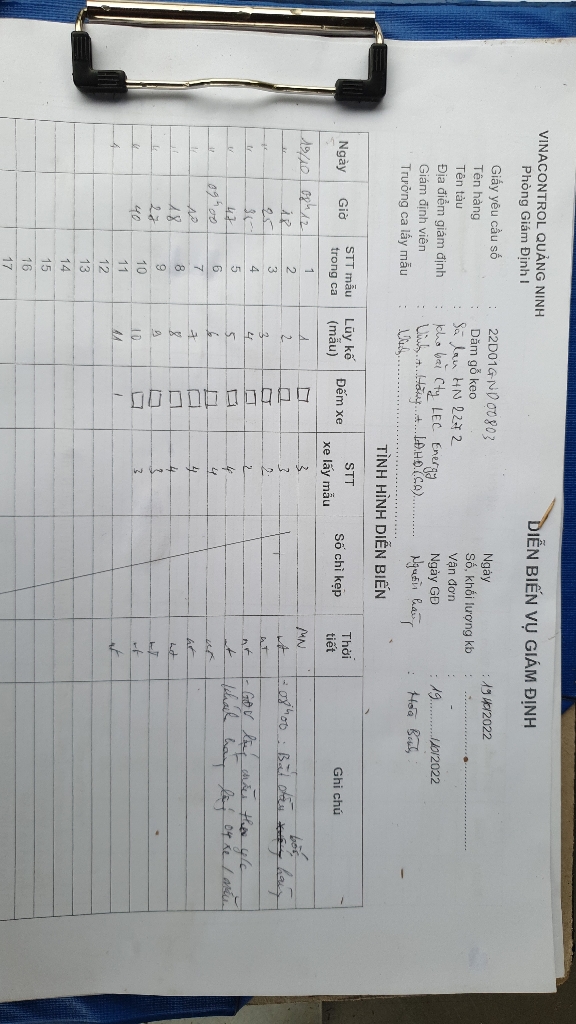 VINACONTROL QUẢNG NINH
Phòng Giám Định I
DIỄN BIẾN VỤ GIÁM ĐỊNH
Giấy yêu cầu số : 22D01GND00803
Ngày : 19/10/2022
Tên hàng : Dăm gỗ keo
Số, khối lượng kb :
Tên tàu : Sà lan HN 2272
Vận đơn : -
Địa điểm giám định : Kho bãi Cty LEC Energy
Ngày GĐ : 19/10/2022
Giám định viên :
Người hàng : Hòa Bình
Trưởng ca lấy mẫu :
TÌNH HÌNH DIỄN BIẾN
Ngày Giờ STT mẫu trong ca Lũy kế (mẫu) Đếm xe STT xe lấy mẫu Số chì kẹp Thời tiết Ghi chú
19/10 08h12 1 1 3 MN
" 18 2 2 3 nt - 08h00 : Bắt đầu bốc hàng
" 25 3 3 2 nt
" 4 4 2 nt - GĐV lấy mẫu theo y/c
" 47 5 5 4 nt khách hàng lấy 04 xe 1 mẫu
" 09h00 6 6 4 nt
" 10 7 7 4 nt
" 18 8 8 4 nt
" 27 9 9 3 nt
" 40 10 10 3 nt
11 11 nt
12
13
14
15
16
17